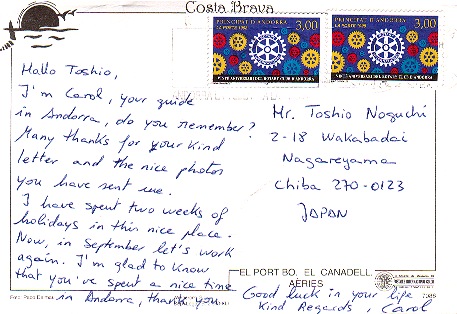 Costa Brava
PRINCIPAT D'ANDORRA
LA POSTE 1998
3,00
PRINCIPAT D'ANDORRA
LA POSTE 1998
3,00
Hallo Toshio,
I'm Carol, your guide
in Andorra, do you remember?
Many thanks for your kind
letter and the nice photos
you have sent me.
I have spent two weeks of
holidays in this nice place.
Now, in September let's work
again. I'm glad to know
that you've spent a nice time
in Andorra, thank you
Good luck in your life
Kind Regards, Carol
Mr. Toshio Noguchi
2-18 Wakabadai
Nagareyama
Chiba 270-0123
JAPAN
EL PORT BO. EL CANADELL.
AÈRIES